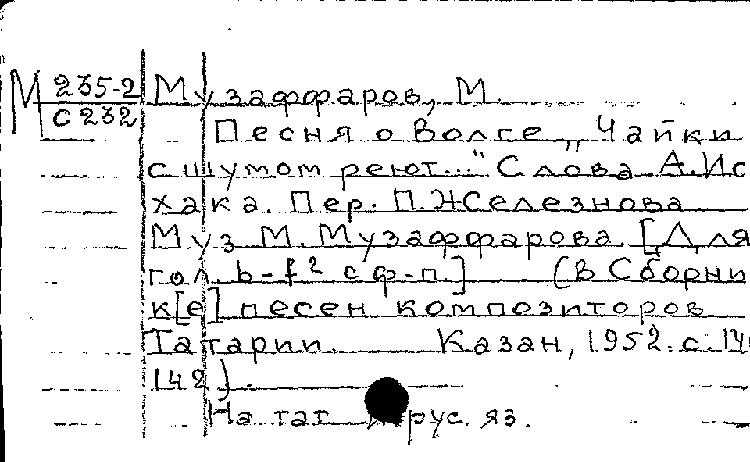 М 235-2
С 232
Музаффаров, М.
Песня о Волге „Чайки
с шумом реют..." Слова А. Ис
хака. Пер. П. Железнова
Муз М. Музаффарова [Для
гол. b-f² с ф-п.] (в Сборни
к[е] песен композиторов
Татарии. Казан, 1952. с.
142).
На тат рус. яз.